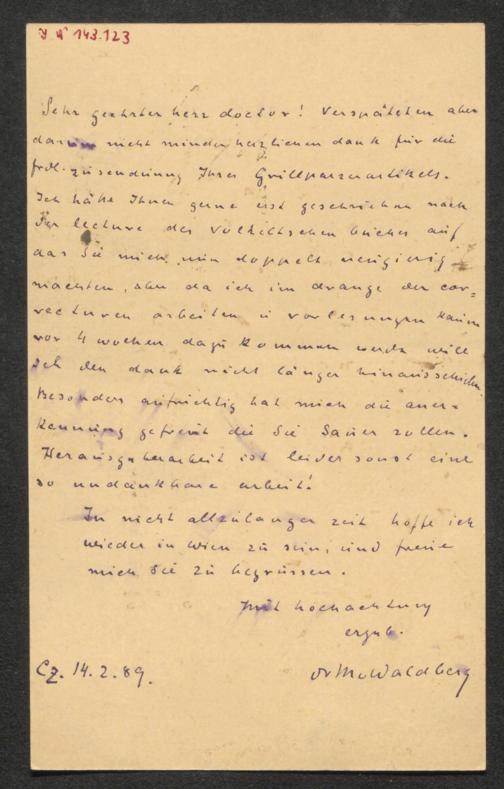 I N 143.123
Sehr geehrter herr doctor! Verspäteten aber
darum nicht minder herzlichen dank für die
frdl. zusendung Ihres Grillparzerartikels.
Ich hätte Ihnen gerne erst geschrieben nach
der lecture des Volkeltschen buches auf
das Sie mich nun doppelt neugierig
machten, aber da ich im drange der cor=
recturen arbeiten u vorlesungen kaum
vor 4 wochen dazu kommen werde will
ich den dank nicht länger hinausschieben.
Besonders aufrichtig hat mich die aner=
kennung gefreut die Sie Sauer zollen.
Herausgeberarbeit ist leider sonst eine
so undankbare arbeit!
In nicht allzulanger zeit hoffe ich
wieder in Wien zu sein, und freue
mich Sie zu begrüssen.
Mit hochachtung
ergeb.
Cz. 14.2.89. Dr MvWaldberg